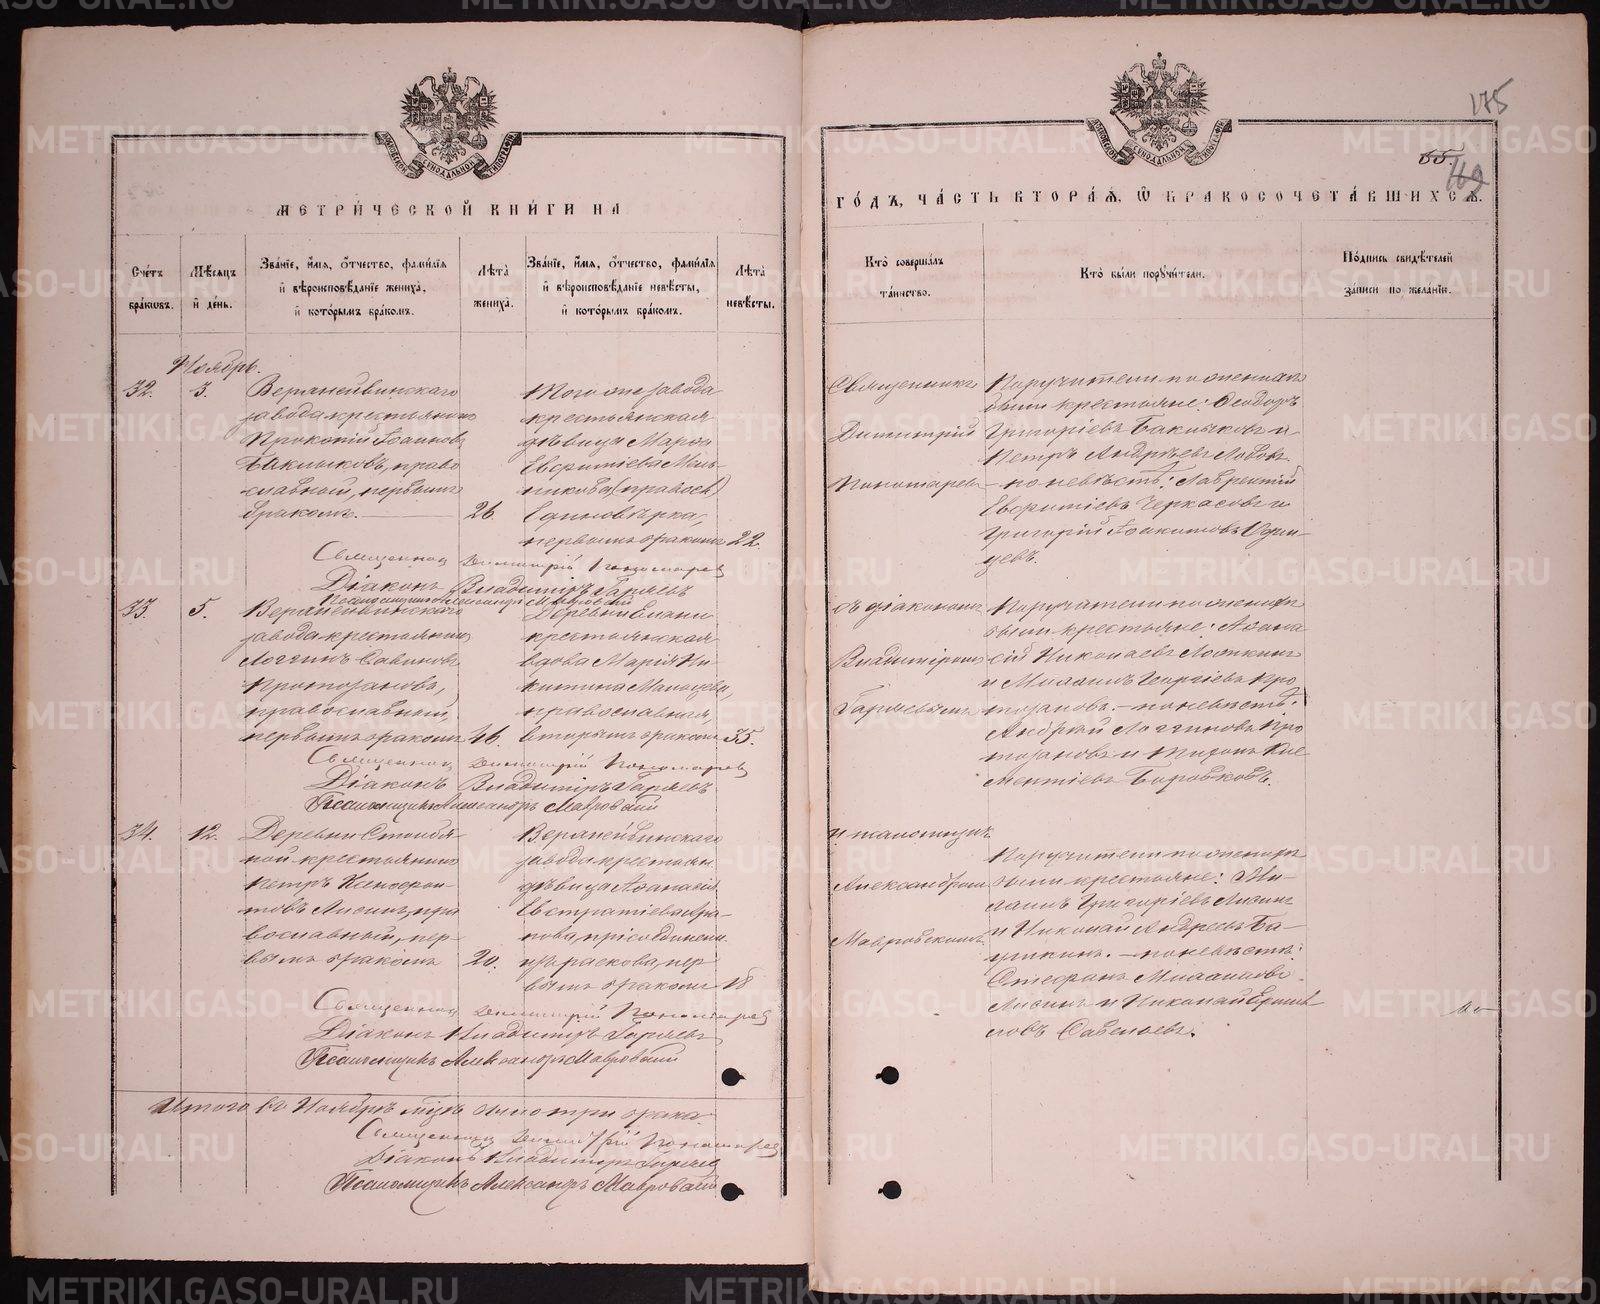 МЕТРИ́ЧЕСКОЙ КНИ́ГИ НА
Сче́тъ бра́кωвъ.
Мѣ́сяцъ и҆ де́нь.
Зва́нїе, и҆́мя, ѻ҆́тчество, фами́лїя и҆ вѣроисповѣ́данїе жениха̀, и҆ кото́рымъ бра́комъ.
Лѣта̀ жениха̀.
Зва́нїе, и҆́мя, ѻ҆́тчество, фами́лїя и҆ вѣроисповѣ́данїе невѣ́сты, и҆ кото́рымъ бра́комъ.
Лѣта̀ невѣ́сты.
Ноябрь.
32.
3.
Верхнейвинскаго
завода крестьянинъ
Прокопій Іоанновъ
Баклыковъ, право
славный, первымъ
бракомъ.
26.
Того же завода
крестьянская
дѣвица Марѳа
Евѳиміева Мель-
никова (правосл)
Единовѣрка,
первымъ бракомъ
22.
Священникъ Димитрій Пономаревъ
Діаконъ Владиміръ Гаряевъ
Псаломщикъ Александръ Мавровскій
33.
5.
Верхнейвинскаго
завода крестьянинъ
Логгинъ Савиновъ
Протозановъ,
православный,
первымъ бракомъ
46.
Деревни Елани
крестьянская
вдова Марія Ни-
китина Мальцева,
православная,
вторымъ бракомъ
35.
Священникъ Димитрій Пономаревъ
Діаконъ Владиміръ Гаряевъ
Псаломщикъ Александръ Мавровскій
34.
12.
Деревни Столбя-
ной крестьянинъ
Петръ Ксенофон-
товъ Лисинъ, пра
вославный, пер-
вымъ бракомъ
20.
Верхнейвинскаго
завода крестьян.
дѣвица Аѳанасія
Евстратіева
присоединен.
изъ раскола, пер
вымъ бракомъ
18
Священникъ Димитрій Пономаревъ
Діаконъ Владиміръ Гаряевъ
Псаломщикъ Александръ Мавровскій
Итого въ Ноябрѣ мцѣ было три брака.
Священникъ Димитрій Пономаревъ
Діаконъ Владиміръ Гаряевъ
Псаломщикъ Александръ Мавровскій
175
65.
169
ГО́ДЪ, ЧА́СТЬ ВТОРА́Я, Ѽ БРАКОСОЧЕТА́ВШИХСЯ.
Кто̀ соверша́лъ та́инство.
Кто̀ бы́ли порꙋчи́тели.
По́дпись свидѣ́телей за́писи по жела́нїю.
Священникъ
Димитрій
Пономаревъ
съ діакономъ
Владиміромъ
Гаряевымъ
и псаломщик.
Александромъ
Мавровскимъ
Поручители по женихѣ
были крестьяне: Ѳеодоръ
Григоріевъ Баклыковъ и
Петръ Андреевъ
– по невѣстѣ: Лаврентій
Евѳиміевъ Черкасовъ и
Григорій Іоакимовъ Один-
цевъ.
Поручители по женихѣ
были крестьяне: Аѳана
сій Николаевъ Лоткинъ
и Михаилъ Георгіевъ Про
тозановъ. – по невѣстѣ:
Андрей Логгиновъ Про
тозановъ и Тихонъ Кле
ментіевъ Боровковъ.
Поручители по женихѣ
были крестьяне: Ми-
хаилъ Григоріевъ Лисинъ
и Николай Андреевъ Ба-
ушкинъ. – по невѣстѣ:
Стефанъ Михаиловъ
Лисинъ и Николай
Савельевъ.
METRIKI.GASO-URAL.RU